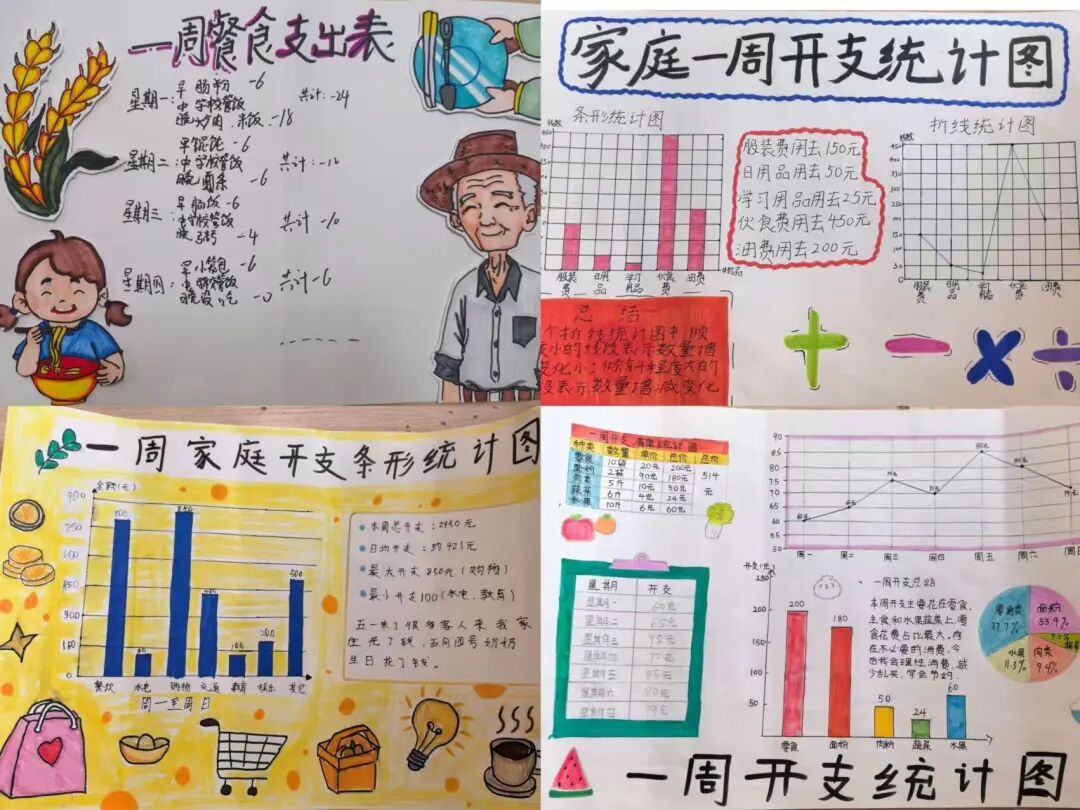 一周餐食支出表
星期一:
早 肠粉 -6
中 学校餐饭
晚 炒肉、米饭 -18
共计: -24
星期二:
早 馄饨 -6
中 学校餐饭
晚 面条 -6
共计: -12
星期三:
早 肠饭 -6
中 学校餐饭
晚 粥 -4
共计 -10
星期四:
早 小笼包 -6
中 学校餐饭
晚 没吃 -0
共计 -6
家庭一周开支统计图
条形统计图
钱数
服装费
日用品
学习用品
伙食费
油费
物品
服装费用去150元
日用品用去50元
学习用品用去25元
伙食费用去450元
油费用去200元
折线统计图
钱数
服装费
日用品
学习用品
伙食费
油费
总结
个折线统计图中,倾
小的线段表示数量增
变化小;倾斜程度大的
段表示数量增减变化
一周家庭开支条形统计图
金额(元)
800
80
850
400
100
200
500
餐饮 水电 购物 交通 教育 娱乐 其它
周一至周日
本周总开支:2950元
日均开支:约421元
最大开支850元(购物)
最小开支100(水电、教育)
五一来了很多客人来我家
生日花了钱。
一周开支清单统计图
种类 数量 单价 总价 总价
零食 10袋 20元 200元
面粉 2袋 90元 180元 514
肉类 5斤 10元 50元 元
蔬菜 6斤 4元 24元
水果 10斤 6元 60元
90
85
80
75
70
65
60
55
50
周一 周二 周三 周四 周五 周六 周日
星期 开支
星期一 60元
星期二 65元
星期三 75元
星期四 70元
星期五 85元
星期六 80元
星期日
开支/元
250
200
150
100
50
200
180
50
24
60
零食 面粉 肉粉 蔬菜 水果
一周开支总结
本周开支主要花在零食、
主食和水果蔬菜上,零
食花费占比最大,存
在不必要的消费,今
后我会理性消费,减
少乱买,学会节约.
零食类
37.7%
面粉
33.9%
水果
11.3%
肉类
9.4%
一周开支统计图